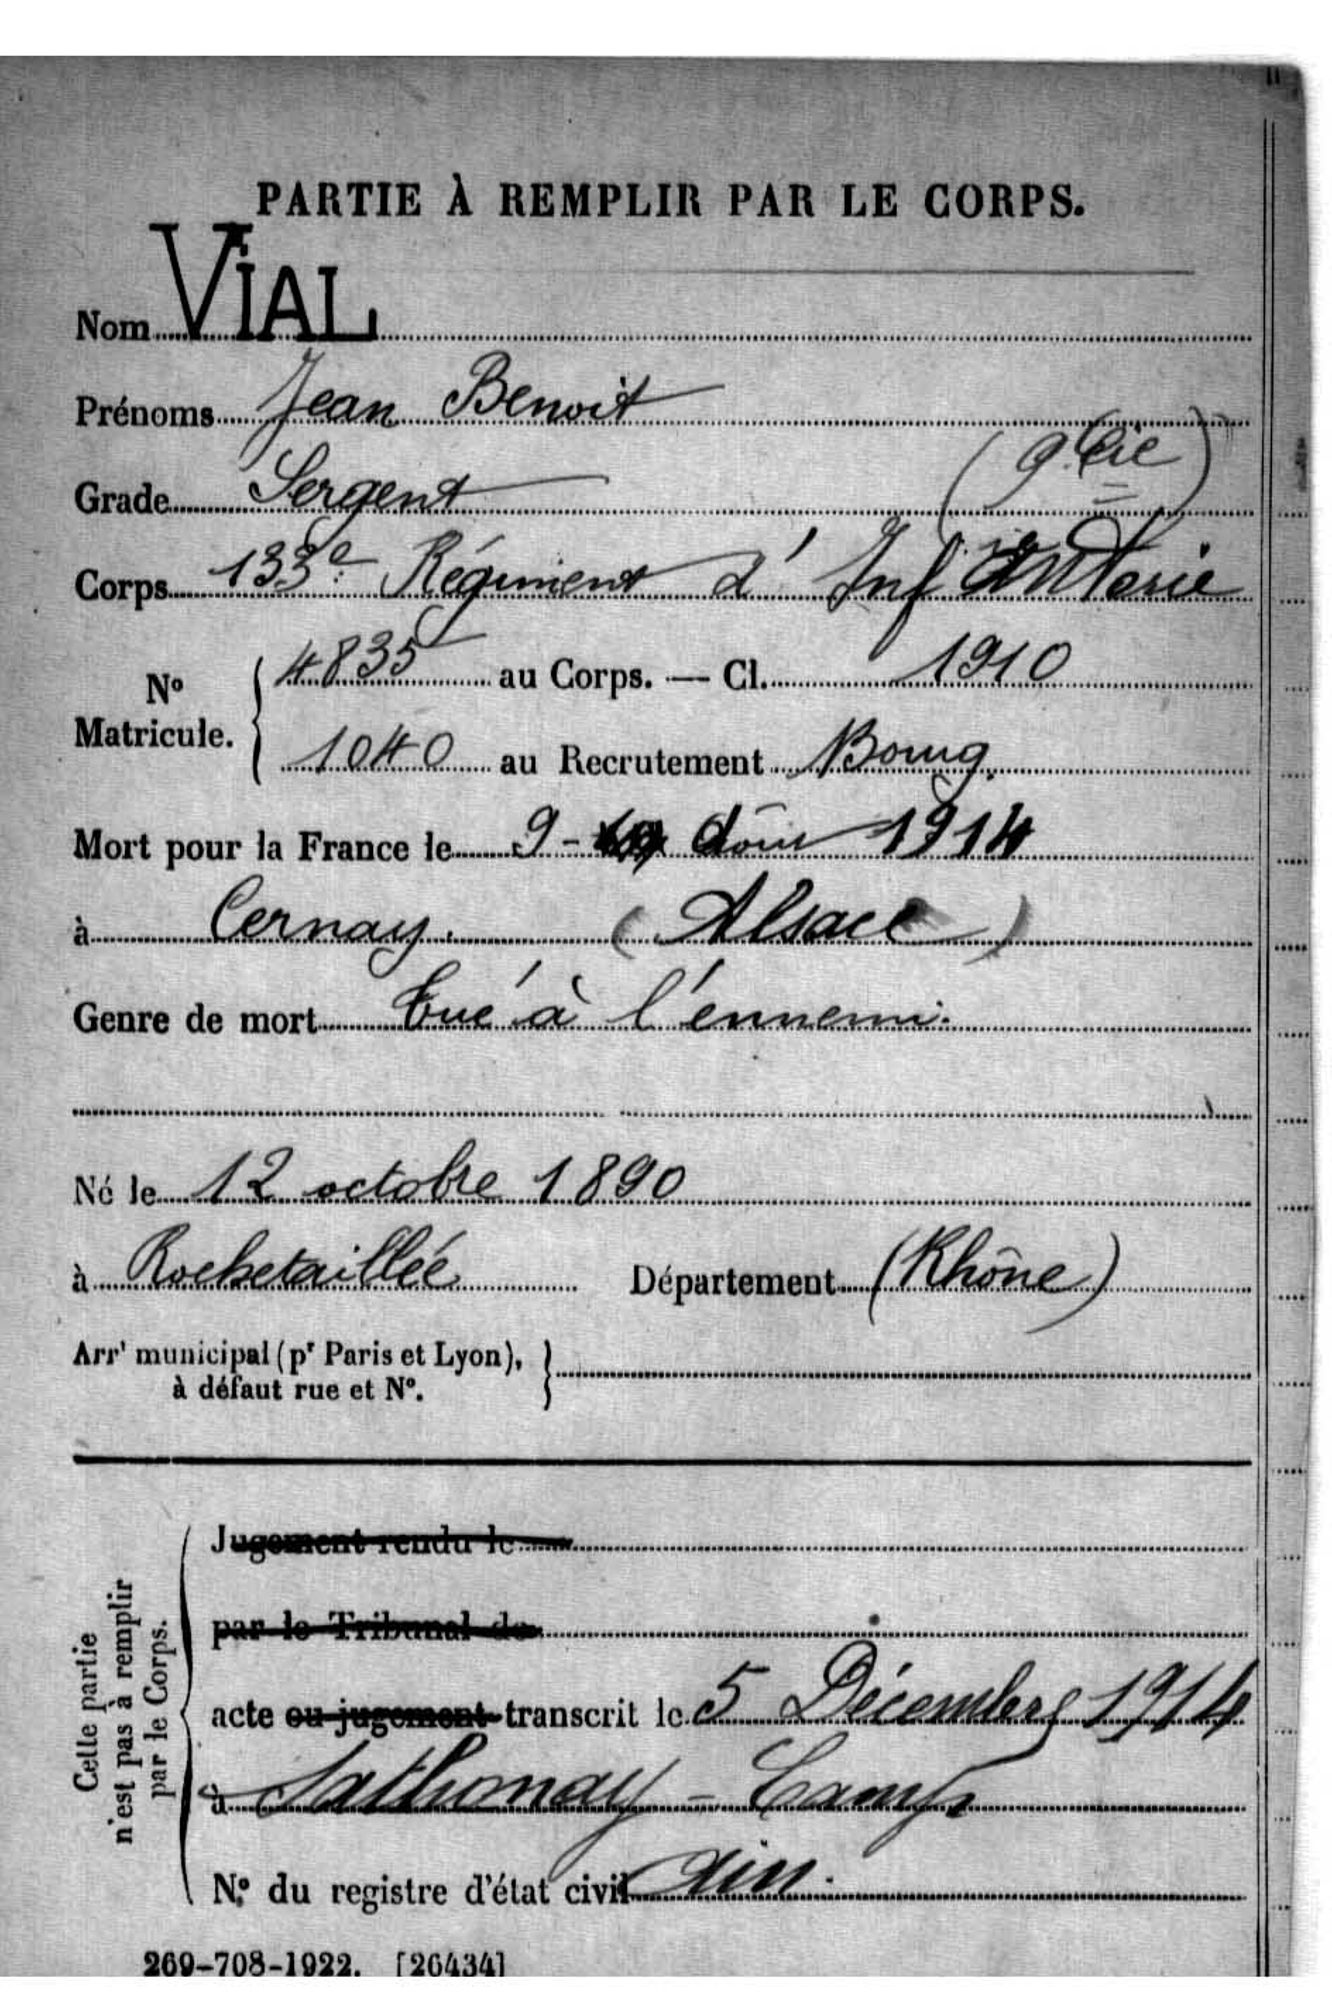 PARTIE À REMPLIR PAR LE CORPS.
Nom VIAL
Prénoms Jean Benoit
(9e Cie)
Grade Sergent
Corps 133e Régiment d'Infanterie
No Matricule. { 4835 au Corps. — Cl. 1910
1040 au Recrutement Bourg.
Mort pour la France le 9 - Août 1914
à Cernay. (Alsace)
Genre de mort Tué à l'ennemi.
Né le 12 octobre 1890
à Rochetaillée Département (Rhône)
Arrt municipal (pr Paris et Lyon), }
à défaut rue et No.
Cette partie
n'est pas à remplir
par le Corps.
Jugement rendu le
par le Tribunal de
acte ou jugement transcrit le 5 Décembre 1914
à Sathonay - Camp
No du registre d'état civil Ain.
269-708-1922. [26434]